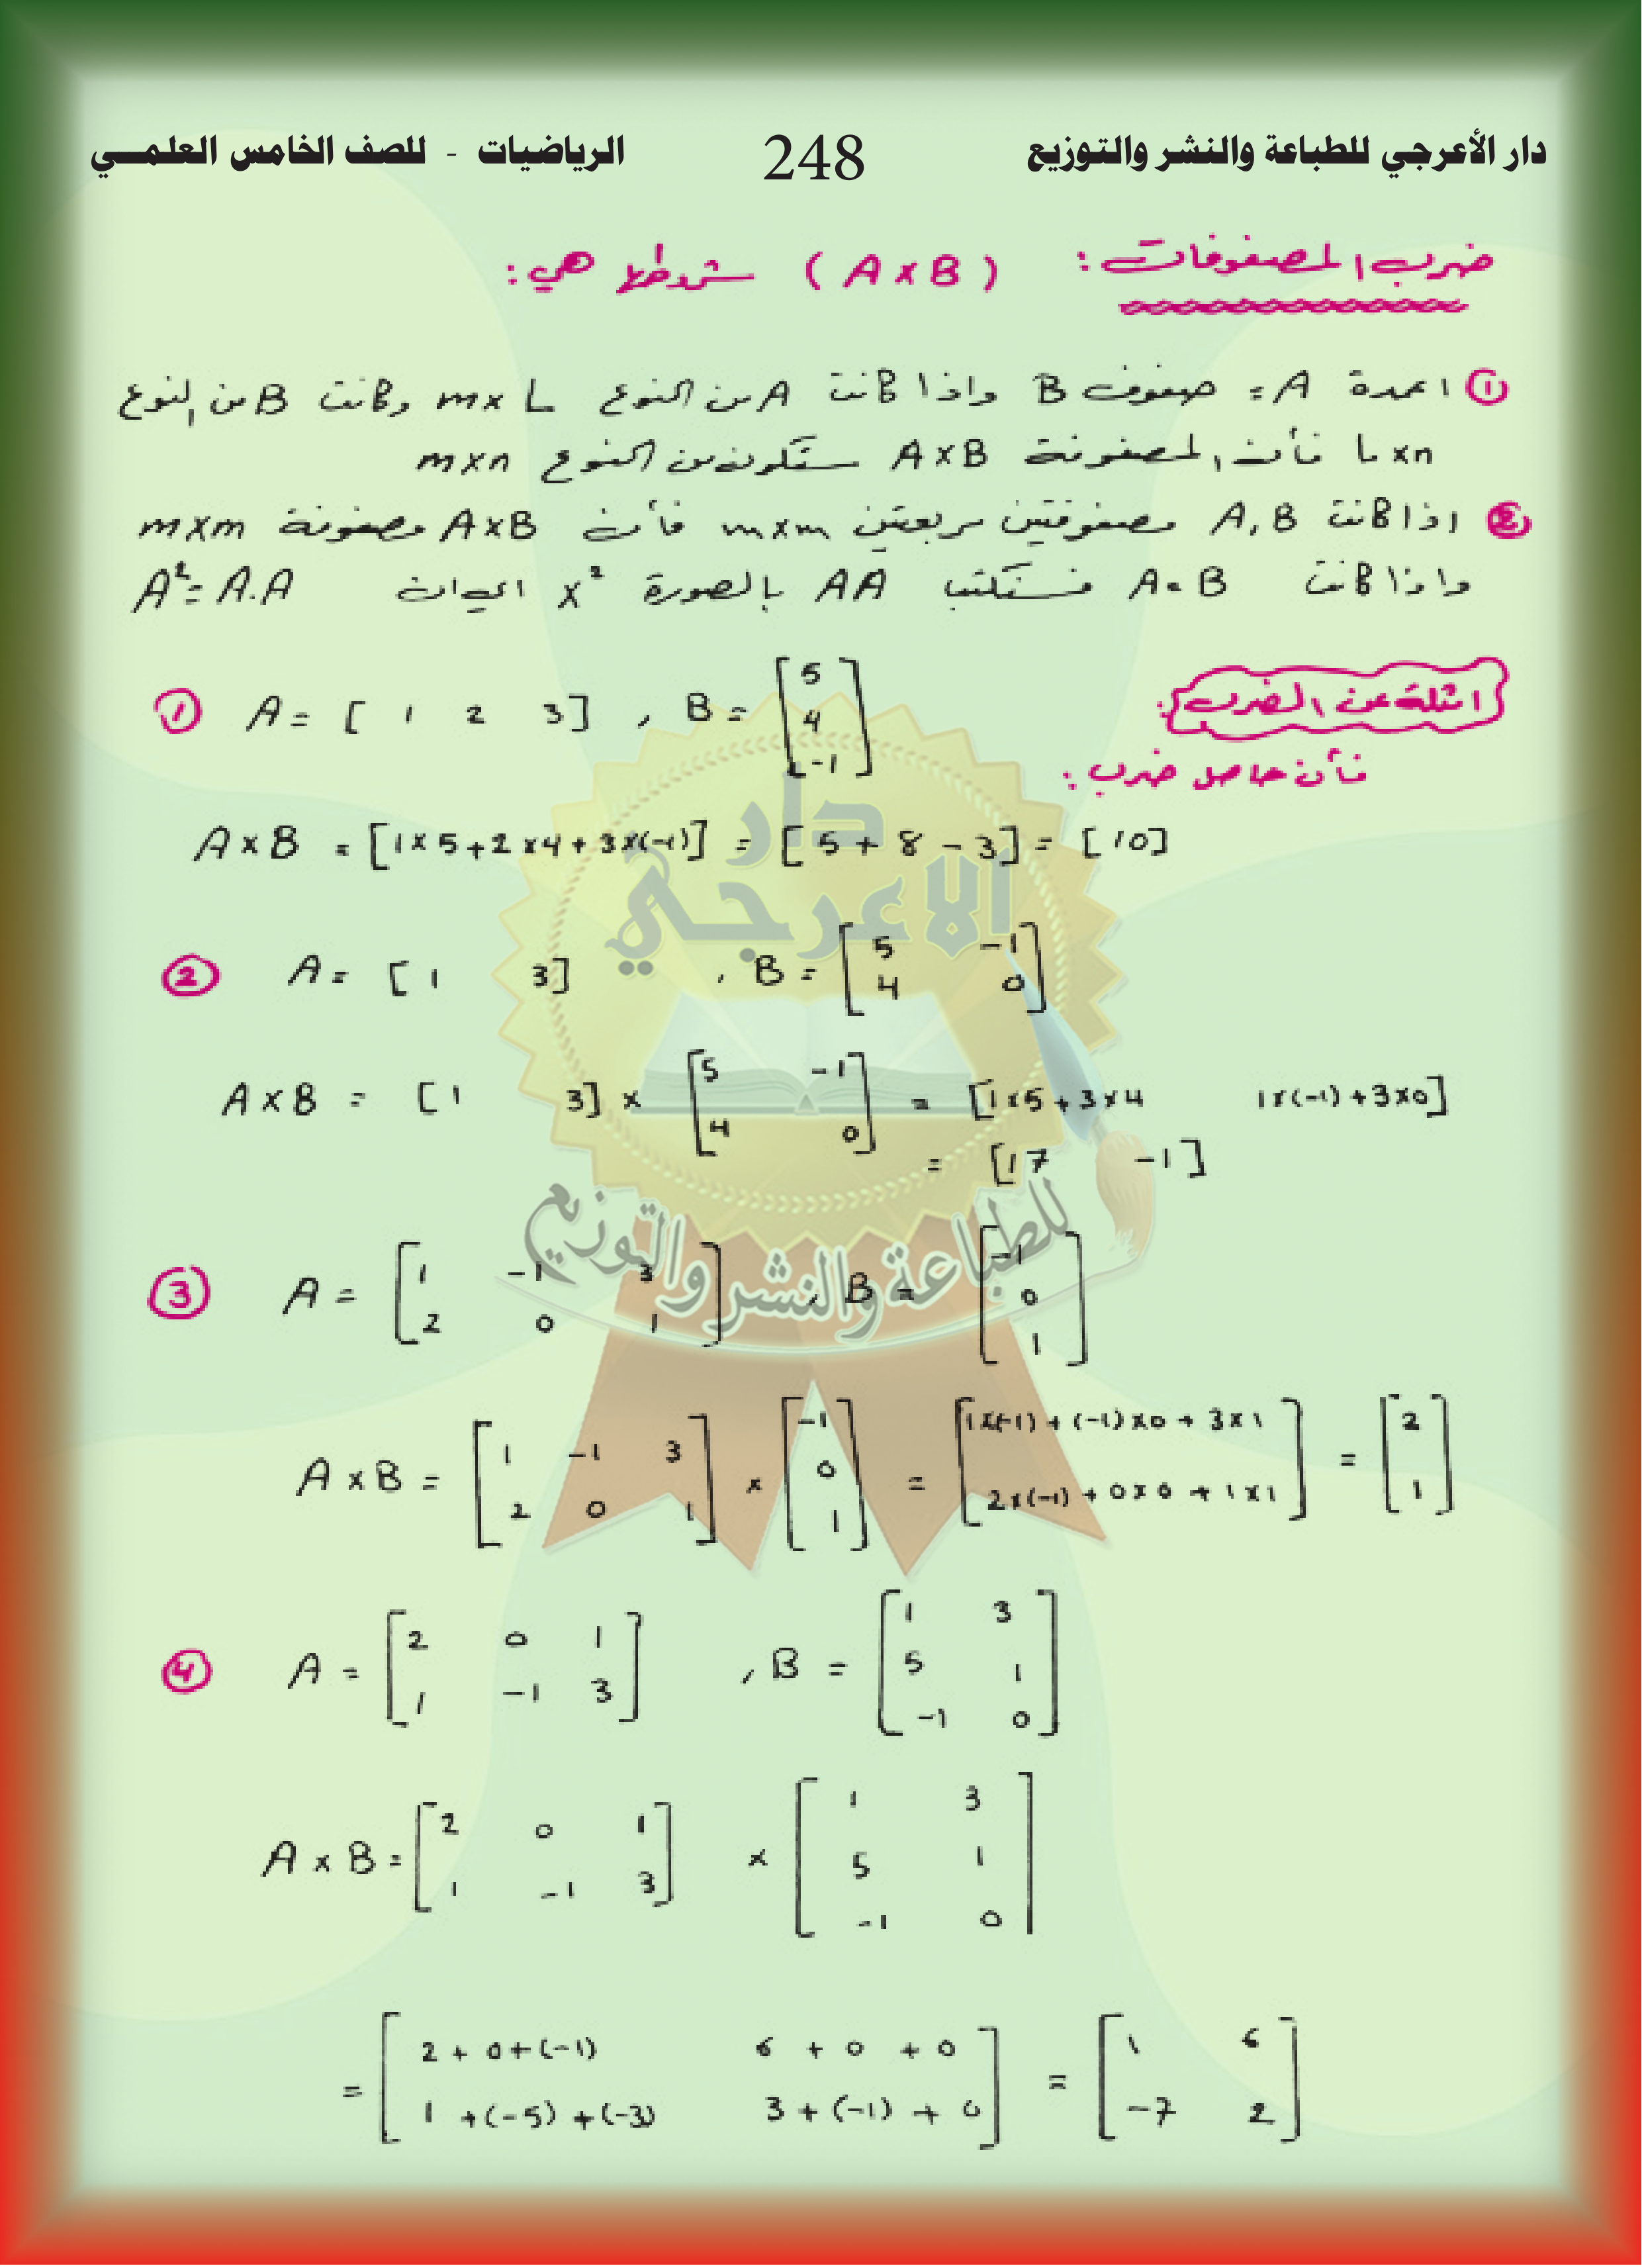 دار الأعرجي للطباعة والنشر والتوزيع 248 الرياضيات - للصف الخامس العلمي
ضرب المصفوفات : ( A x B ) شروطها هي :
① اعمدة A = صفوف B واذا كانت A من النوع m x L وكانت B من النوع
L x n فأن المصفوفة A x B ستكون من النوع m x n
② اذا كانت A , B مصفوفتين مربعتين m x m فأن A x B مصفوفة m x m
واذا كانت A = B فستكتب AA بالصورة x² اي ان A² = A.A
امثلة عن الضرب :
① A = [ 1 2 3 ] , B = [ 5
4
-1 ]
فأن حاصل ضرب :
A x B = [1 x 5 + 2 x 4 + 3 x (-1)] = [ 5 + 8 - 3 ] = [ 10 ]
② A = [ 1 3 ] , B = [ 5 -1
4 0 ]
A x B = [ 1 3 ] x [ 5 -1
4 0 ] = [ 1 x 5 + 3 x 4 1 x (-1) + 3 x 0 ]
= [ 17 -1 ]
③ A = [ 1 -1 3
2 0 1 ] , B = [ -1
0
1 ]
A x B = [ 1 -1 3
2 0 1 ] x [ -1
0
1 ] = [ 1 x (-1) + (-1) x 0 + 3 x 1
2 x (-1) + 0 x 0 + 1 x 1 ] = [ 2
1 ]
④ A = [ 2 0 1
1 -1 3 ] , B = [ 1 3
5 1
-1 0 ]
A x B = [ 2 0 1
1 -1 3 ] x [ 1 3
5 1
-1 0 ]
= [ 2 + 0 + (-1) 6 + 0 + 0
1 + (-5) + (-3) 3 + (-1) + 0 ] = [ 1 6
-7 2 ]
دار
الاعرجي
للطباعة والنشر والتوزيع